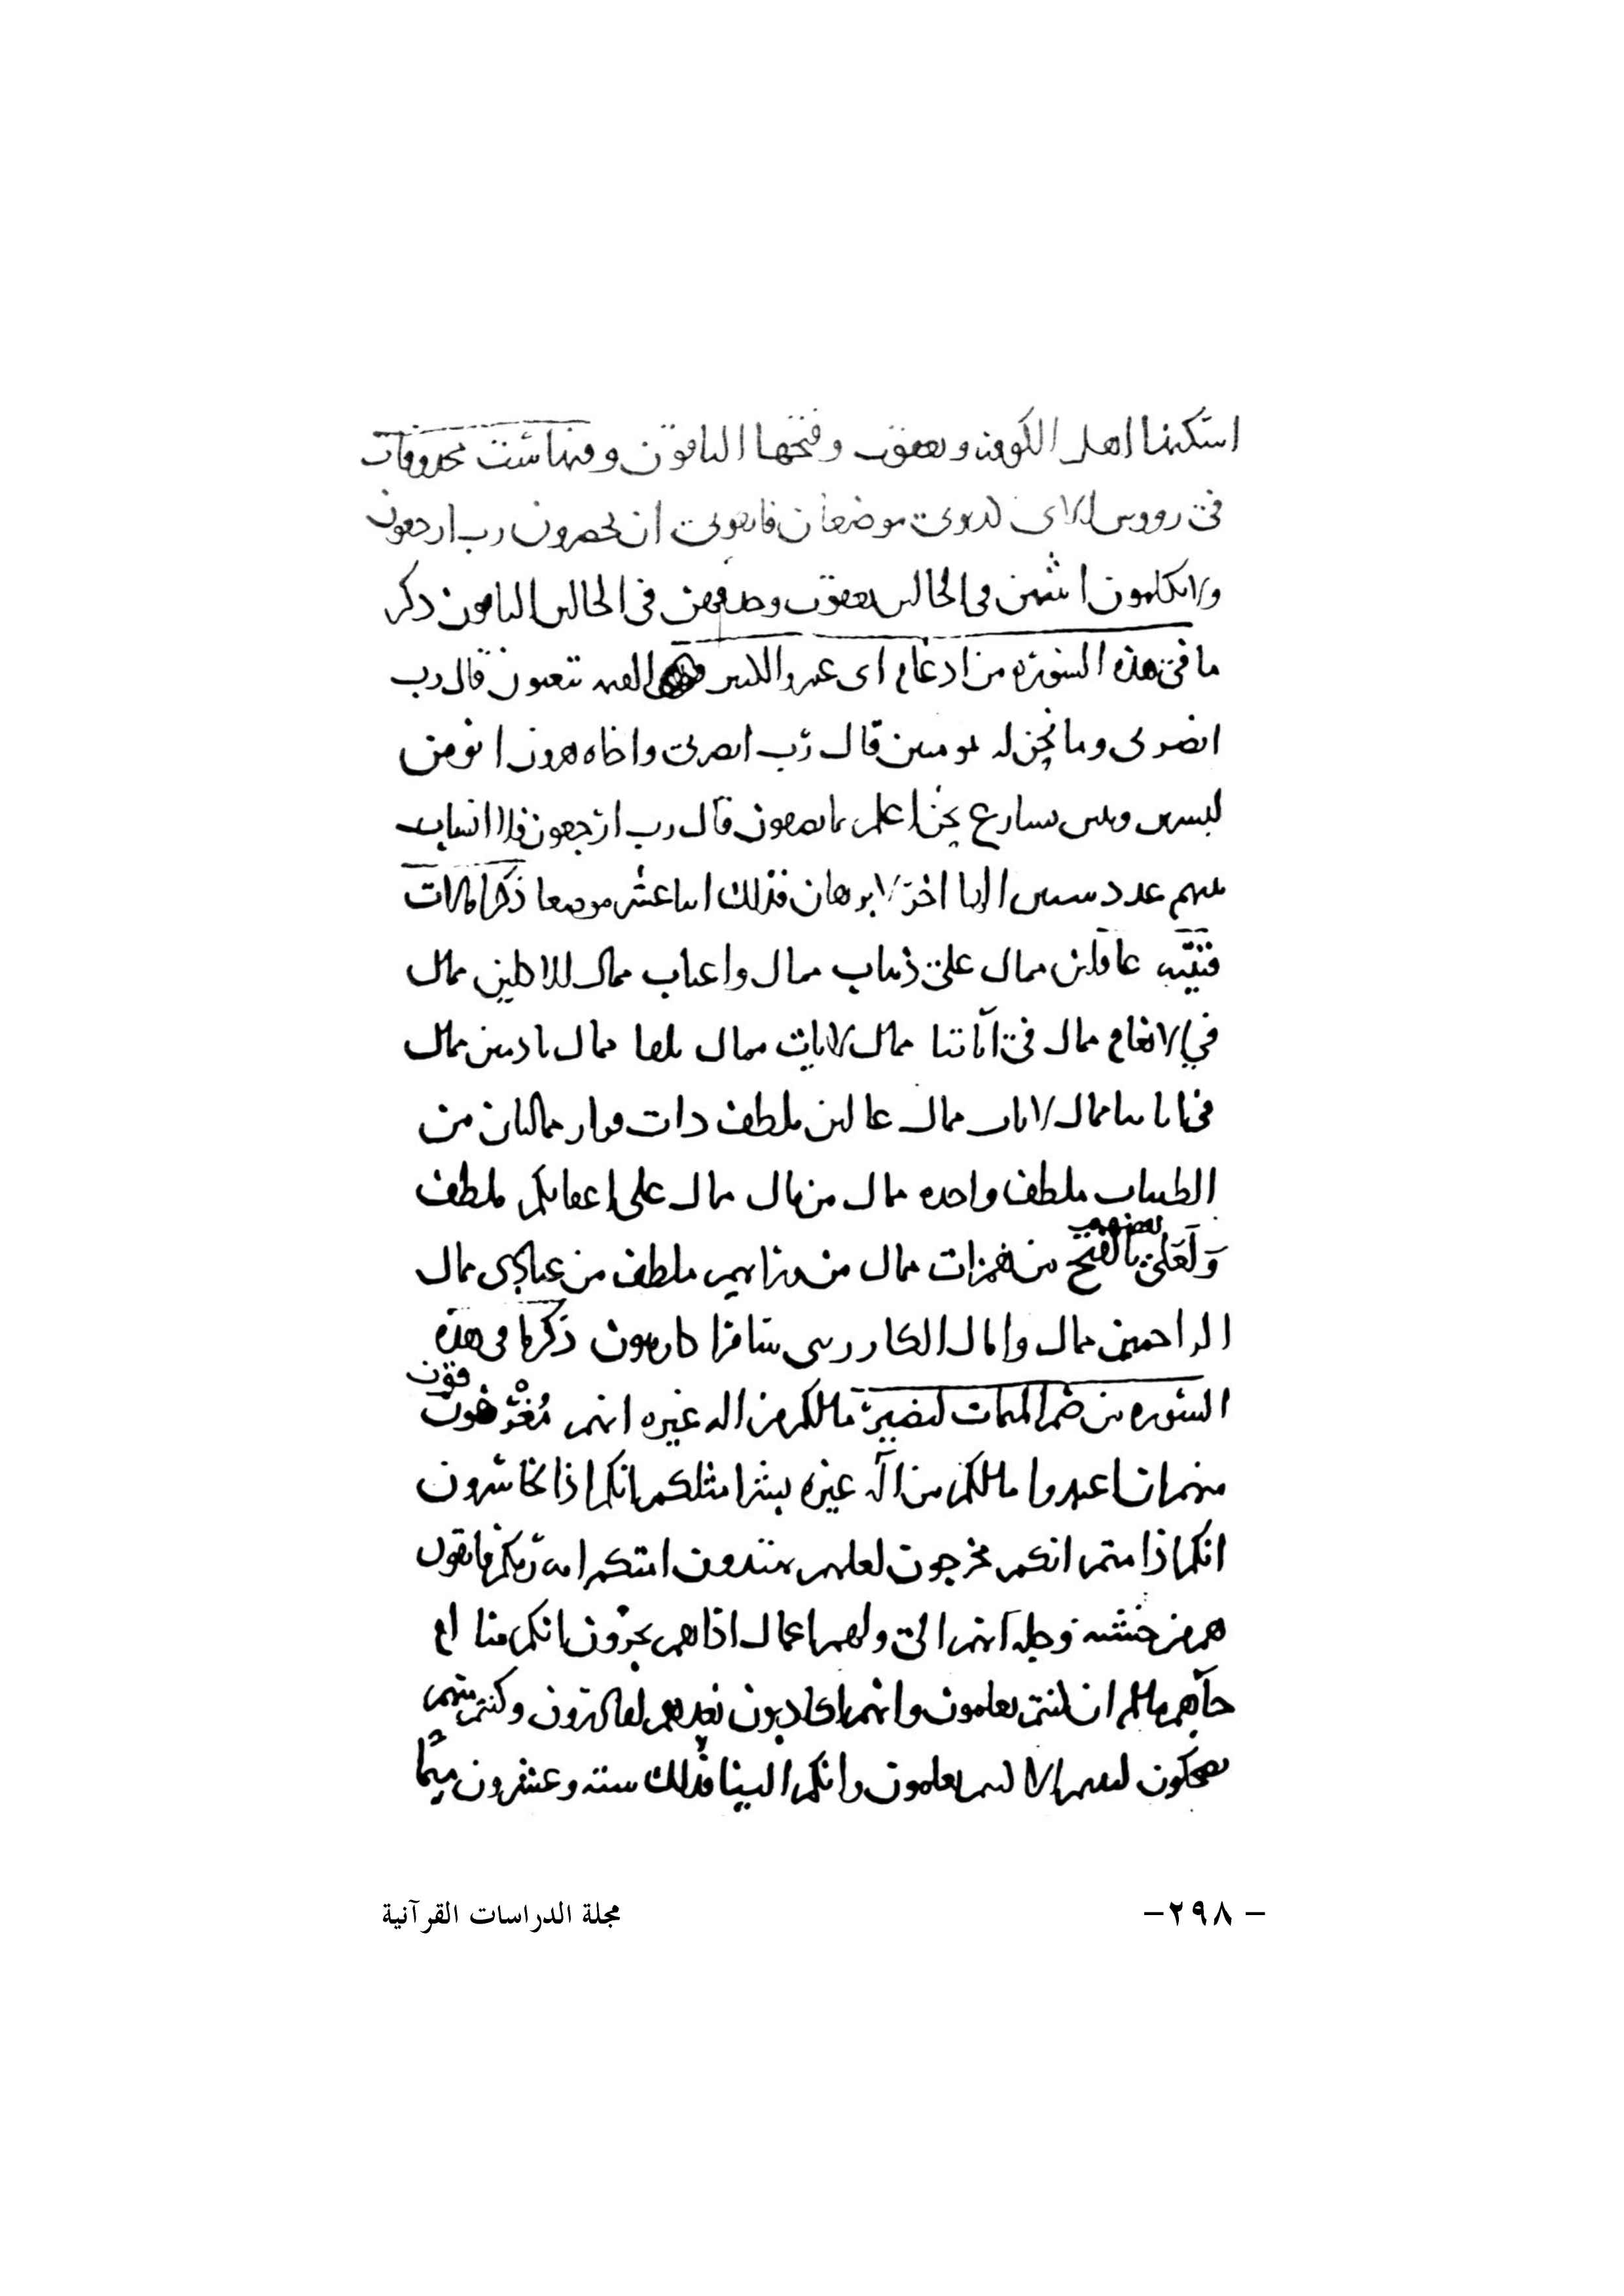 اسكنها اهل الكوفه ويعقوب وفتحها الباقون وفيها ست محذوفات
في رووس الاى لدبوى موضعان فاتقونى ان يحضرون رب ارجعون
ولا تكلمون اثبتهن في الحالين يعقوب وحذفهن في الحالين الباقون ذكر
ما في هذه السورة من ادغام ابى عمرو الكبير القيمه تبعثون قال رب
انصرنى وما نحن له بمومنين قال رب انصرنى واخاه هرون انومن
لبشرين وبنين نسارع نحن اعلم بما يصفون قال رب ارجعون فلا انساب
بينهم عدد سنين الها اخر لا برهان فذلك اثنا عشر موضعا ذكر امالات
فتيبه عافلين ممال على ذهاب ممال واعناب ممال للاكلين ممال
في الانعام ممال في آباتنا ممال لايات ممال بلقا ممال نادمين ممال
في اباينا ممال لايات ممال عالين ملطف ذات قرار ممالتان من
الطيبات ملطف واحده ممال من مال ممال على اعقابكم ملطف
ولعلى بعضهم بالفتح من همزات ممال من ورايهم ملطف من عبادى ممال
الراحمين ممال وامال الكار رسى سامرا كارهون ذكر ما في هذه
السورة من ضم الميمات لنصير ما لكم من اله غيره انهم مغرقون
منهم ان اعبدوا ما لكم من اله غيره بشرا مثلكم انكم اذا لخاسرون
انكم اذا متم انكم مخرجون لعلهم يهتدون امتكم امه ربكم فاتقون
هم من خشيه وجله انهم الى ولهم اعمال اذا هم يجرون انكم منا ام
جآهم ما لم ان كنتم تعلمون وانهم لكاذبون نعدهم لقادرون وكنتم منهم
تضحكون لبثتم الا كنتم تعلمون وانكم الينا فذلك ستة وعشرون ميما
مجلة الدراسات القرآنية
- ٢٩٨-